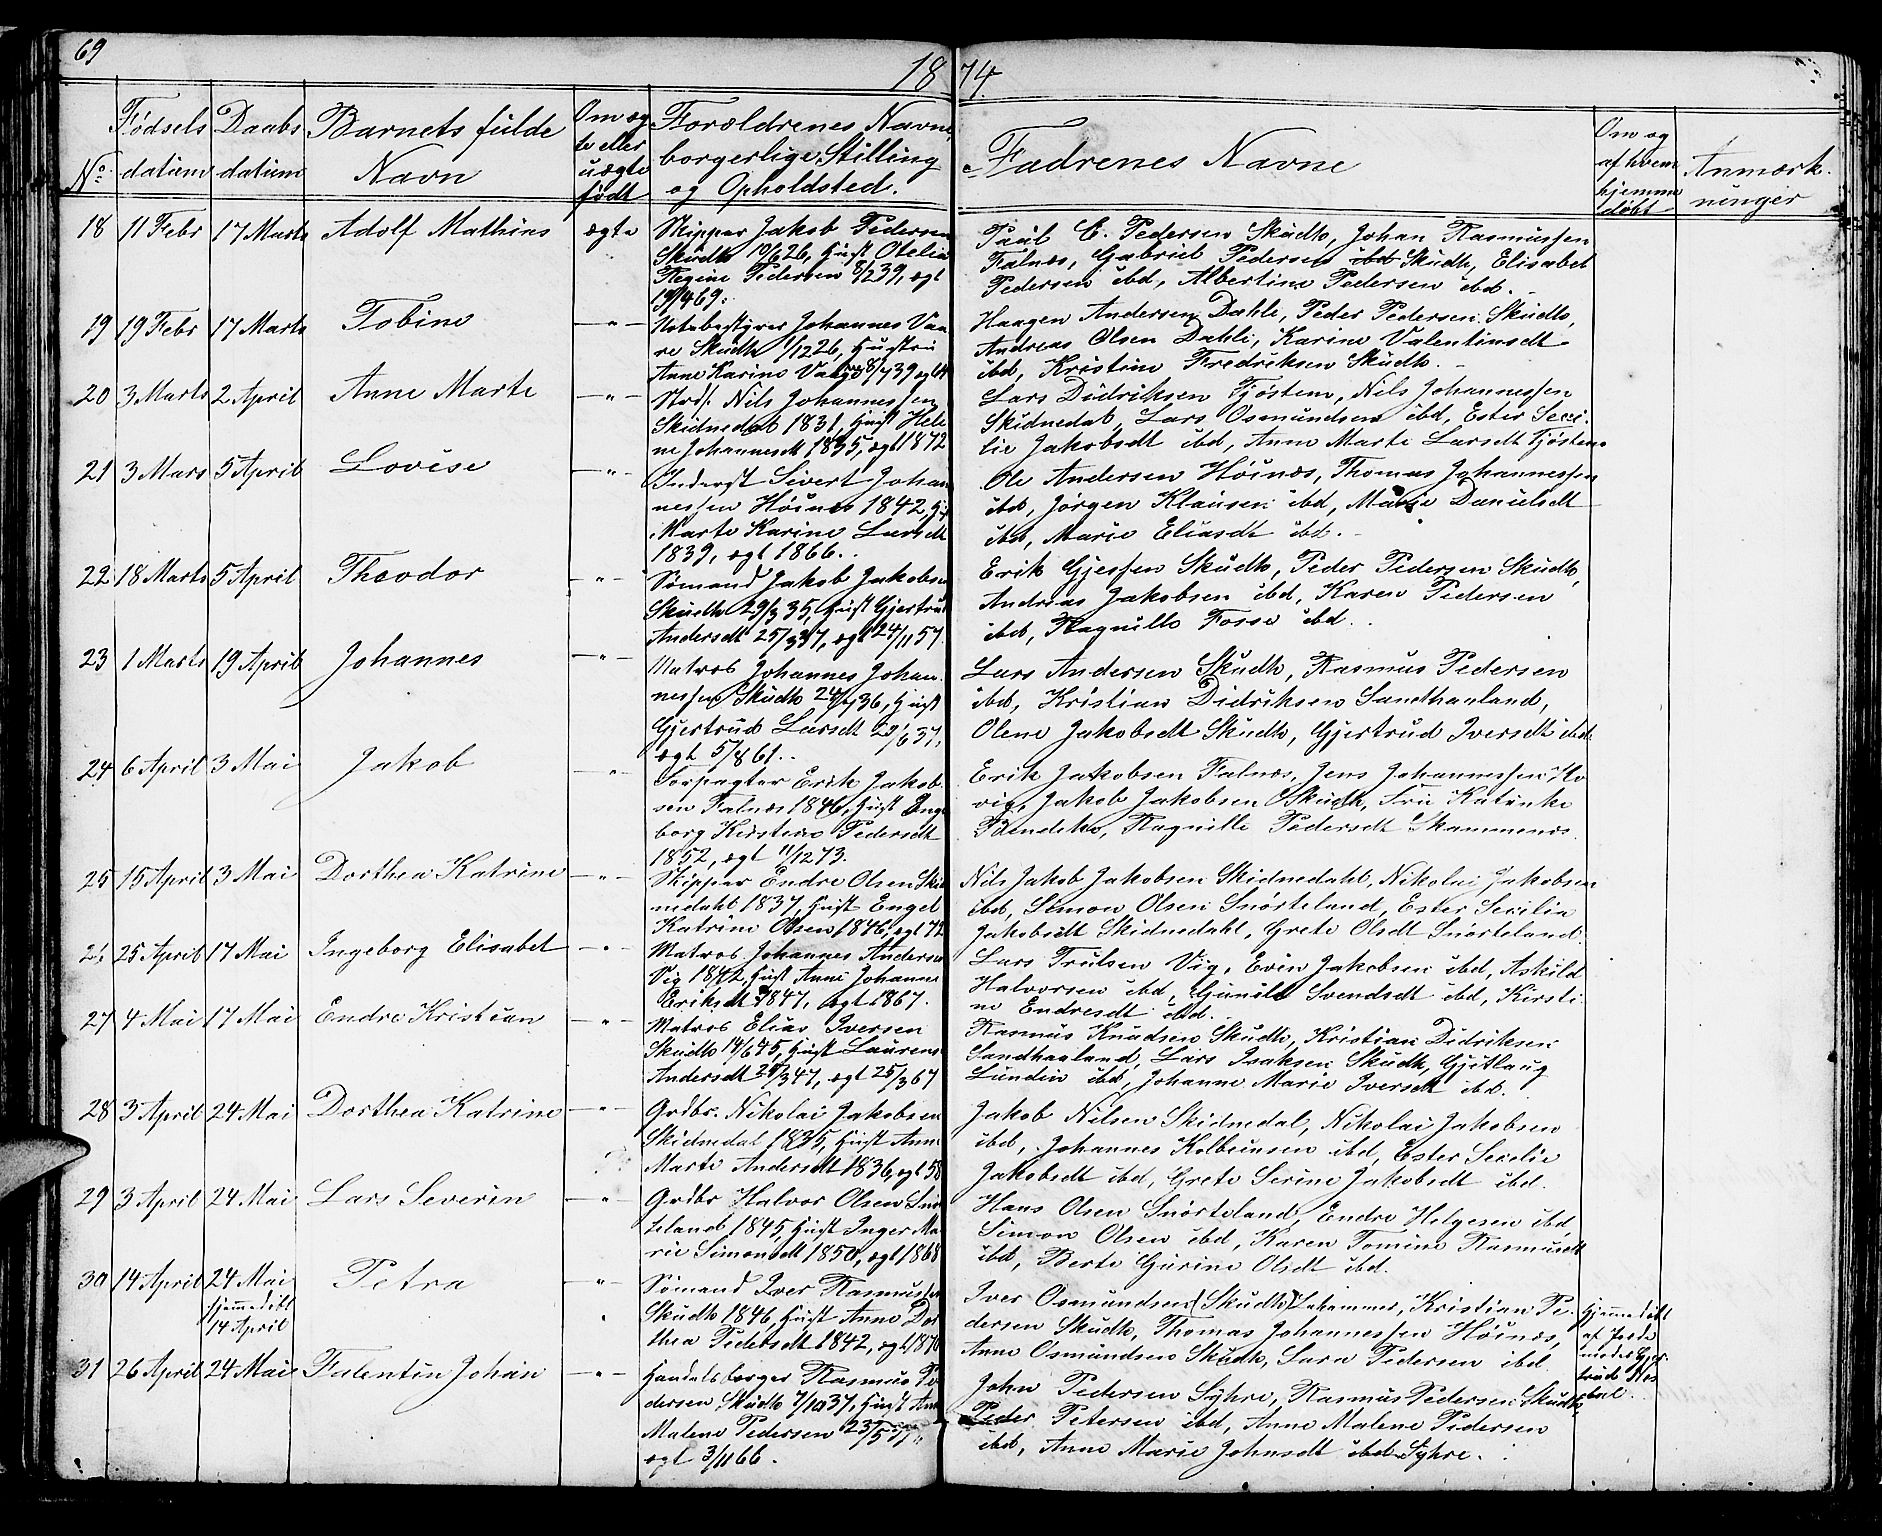 69
1874.
No. Fødsels datum Daabs datum Barnets fulde Navn Om ægte eller uægte født Forældrenes Navne, borgerlige Stilling og Opholdsted. Fadrenes Navne Om og af hvem hjemme døbt Anmærkninger
18 11 Febr 17 Marts Adolf Mathias ægte
Skipper Jakob Pedersen
Skudh 10/6 26, Hust Otelia
Regine Pedersen 8/2 39, ægt
19/4 69.
Paul C. Pedersen Skudh, Johan Rasmussen
Falnæs, Gabriel Pedersen ibd Skudh, Elisabet
Pedersen ibd, Albertine Pedersen ibd.
19 19 Febr 17 Marts Tobine — " —
Notebestyrer Johannes Vaa
re Skudh 1/12 26, Hustru
Anne Karine Vaage 8/7 39 ægt
Haagen Andersen Dahle, Peder Pedersen Skudh,
Andreas Olsen Dahle, Karine Valentinsdt
ibd, Kristine Fredriksen Skudh.
20 3 Marts 2 April Anne Marte — " —
Nils Johannessen
Skidnedal 1831, Hust Hele
ne Johannesdt 1835, ægt 1872
Lars Didriksen Tjøstem, Nils Johannessen
Skidnedal, Lars Osmundsen ibd, Ester Seci
lie Jakobsdt ibd, Anne Marte Larsdt Tjøstem
21 3 Mars 5 April Lovise — " —
Inderst Sivert Johan
nessen Høines 1842, H
Marte Karine Larsdt
1839, ægt 1866.
Ole Andersen Høinæs, Thomas Johannessen
ibd, Jørgen Klausen ibd, Marie Danielsdt
ibd, Marie Eliasdt ibd.
22 18 Marts 5 April Theodor — " —
Sømand Jakob Jakobsen
Skudh 29/3 35, Hust Gjertrud
Andersdt 25/3 37, ægt 24/11 57.
Erik Gjessen Skudh, Peder Pedersen Skudh,
Andreas Jakobsen ibd, Karen Pedersen
ibd, Ragnille Fosse ibd.
23 1 Marts 19 April Johannes — " —
Matros Johannes Johan
nessen Skudh 36, Hust
Gjertrud Larsdt 37,
ægt 5/8 61.
Lars Andersen Skudh, Rasmus Pedersen
ibd, Kristian Didriksen Sandhaaland,
Olene Jakobsdt Skudh, Gjertrud Iversdt ibd
24 6 April 3 Mai Jakob "
Forpagter Erik Jakob
sen Falnæs 1846, Hust Inge
borg Kirstine Pedersdt
1852, ægt 11/12 73.
Erik Jakobsen Falnæs, Jens Johannessen Ho
vig, Jakob Jakobsen Skudh, Fru Katinke
Ragnille Pedersdt Skammenæs
25 15 April 3 Mai Dorthea Katrine — " —
Skipper Endre Olsen Skid
nedahl 1837, Hust Engel
Katrine Olsen 1846, ægt 72
Nils Jakob Jakobsen Skidnedahl, Nikolai Jakobsen
ibd, Simon Olsen Snørteland, Ester Secilia
Jakobsdt Skidnedahl, Grete Olsdt Snørteland.
25 April 17 Mai Ingeborg Elisabet — " —
Matros Johannes Anders
Vig 1842, Hust Anne Johanne
Eriksdt 1847, ægt 1867.
Lars Trulsen Vig, Even Jakobsen ibd, Askild
Halvorsen ibd, Gunild Svendsdt ibd, Kirsti
ne Endresdt ibd.
27 4 Mai 17 Mai Endre Kristian — " —
Matros Elias Iversen
Skudh 14/6 45, Hust Laurense
Andersdt 47, ægt 25/3 67
Rasmus Knudsen Skudh, Kristian Didriksen
Sandhaaland, Lars Isaksen Skudh, Gjetlaug
Lundin ibd, Johanne Marie Iversdt ibd.
28 3 April 24 Mai Dorthea Katrine — " —
Grdbr. Nikolai Jakobsen
Skidnedal 1835, Hust Anne
Marte Andersdt 1836, ægt 58
Jakob Nilsen Skidnedal, Nikolai Jakobsen
ibd, Johannes Kolbeinsen ibd, Ester Secelie
Jakobsdt ibd, Grete Serine Jakobsdt ibd.
29 3 April 24 Mai Lars Severin — " —
Grdbr Halvor Olsen Snør
teland 1845, Hust Inger Ma
rie Simonsdt 1850, ægt 1868
Hans Olsen Snørteland, Endre Helgesen ibd
Simon Olsen ibd, Karen Tomine Rasmusdt
ibd, Berte Gurine Olsdt ibd.
30 14 April 24 Mai Petra — " —
hjemmedøbt
14 April
Sømand Iver Rasmussen
Skudh 1846, Hust Anne Dor
thea Pedersdt 1842, ægt 1870
Iver Osmundsen (Skudh) Lahammer, Kristian Pe
dersen Skudh, Thomas Johannessen Høinæs,
Anne Osmundsen Skudh, Sara Pedersen ibd.
Hjemmedøbt
af Jorde
moder Gjer
trud
31 26 April 24 Mai Falentin Johan — " —
Handelsborger Rasmus Pe
dersen Skudh 7/10 37, Hust Ane
Malene Pedersen 23/5
ægt 3/11 66.
John Pedersen Syhre, Rasmus Pedersen Skudh,
Peder Petersen ibd, Anne Malene Pedersen
ibd, Anne Marie Johnsdt ibd Syhre.